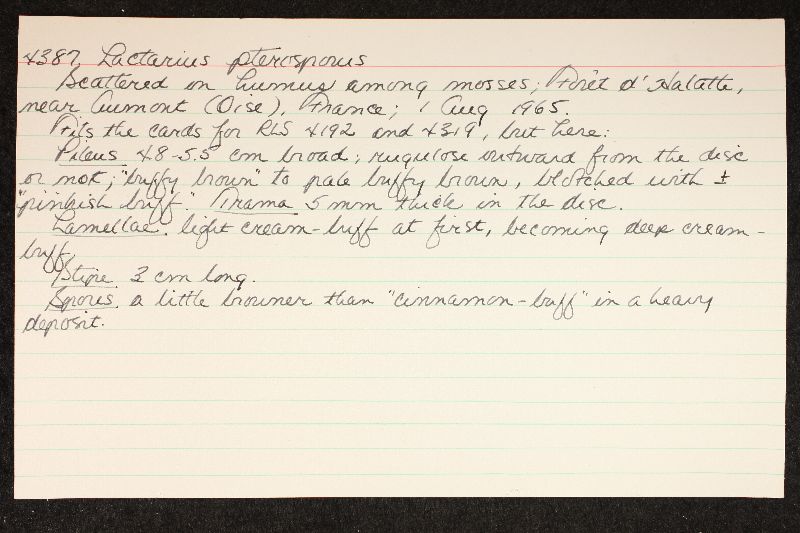 4387 Lactarius pterosporus
Scattered on humus among mosses; Forêt d'Halatte,
near Aumont (Oise), France; 1 Aug 1965.
Fits the cards for RLS 4192 and 4319, but here:
Pileus 48-5.5 cm broad; rugulose outward from the disc
or not; "buffy brown" to pale buffy brown, blotched with ±
"pinkish buff." Trama 5 mm thick in the disc.
Lamellae light cream-buff at first, becoming deep cream-
buff.
Stipe 3 cm long.
Spores a little browner than "cinnamon-buff" in a heavy
deposit.